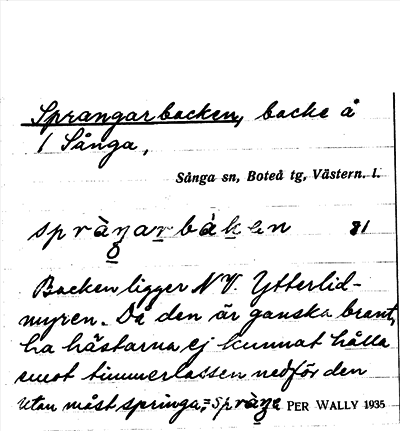 Sprangarbacken, backe å
1 Sånga,
Sånga sn, Boteå tg, Västern. l.
81
Backen ligger NV. Ytterlid-
myren. Då den är ganska brant,
ha hästarna ej kunnat hålla
emot timmerlassen nedför den
utan måst springa,=
PER WALLY 1935